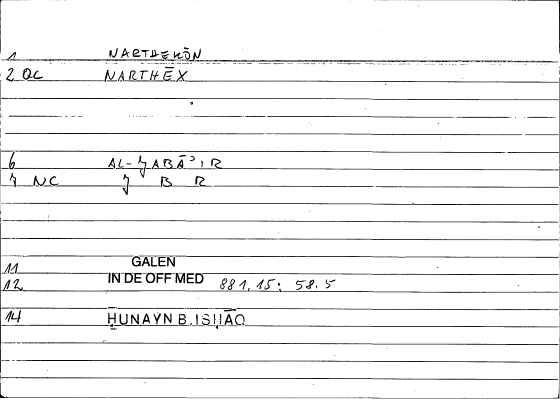 1 NARTHEKŌN
2 QC NARTHĒX
6 AL-JABĀʾIR
7 NC J B R
11 GALEN
12 IN DE OFF MED 881,15: 58.5
14 ḤUNAYN B.ISḤĀQ